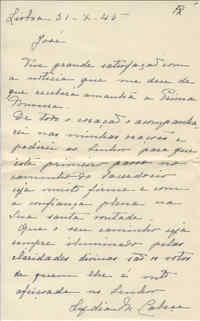 Lisboa 31-X-45
José
Tive grande satisfação com
a noticia que me deu de
que receberá amanhã a Prima
Tonsura.
De todo o coração o acompanha
rei nas minhas orações e
pedirei ao Senhor para que
este primeiro passo no
caminho do Sacerdocio
seja muito firme e com
a confiança plena na
Sua santa vontade.
Que o seu caminho seja
sempre iluminado pelas
claridades divinas são os votos
de quem lhe é mto
afeiçoada no Senhor
Lydia M